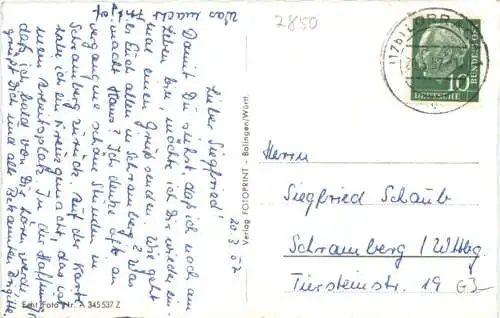 2850
20.3.57
Lieber Siegfried!
Damit Du siehst daß ich noch am
Leben bin, möchte ich Dir wieder ein-
mal einen Gruß senden. Wie geht
es Euch allen in Schramberg? Was
macht Hans? Ich denke oft an
vergangene schöne Stunden in
Schramberg zurück. Auf der Karte
habe ich ein Kreuz gemacht, das ist
mein Arbeitsplatz. In der Hoffnung
daß ich bald von Dir hören werde
grüßt Dich und alle Bekannten Brigitte
Was macht
Echt Foto Nr. A 345537 Z
Verlag FOTOPRINT - Balingen/Württ.
(17b) LÖRR
DEUTSCHE BUNDESPOST
10
Herrn
Siegfried Schaub
Schramberg / Wttbg
Tiersteinstr. 19